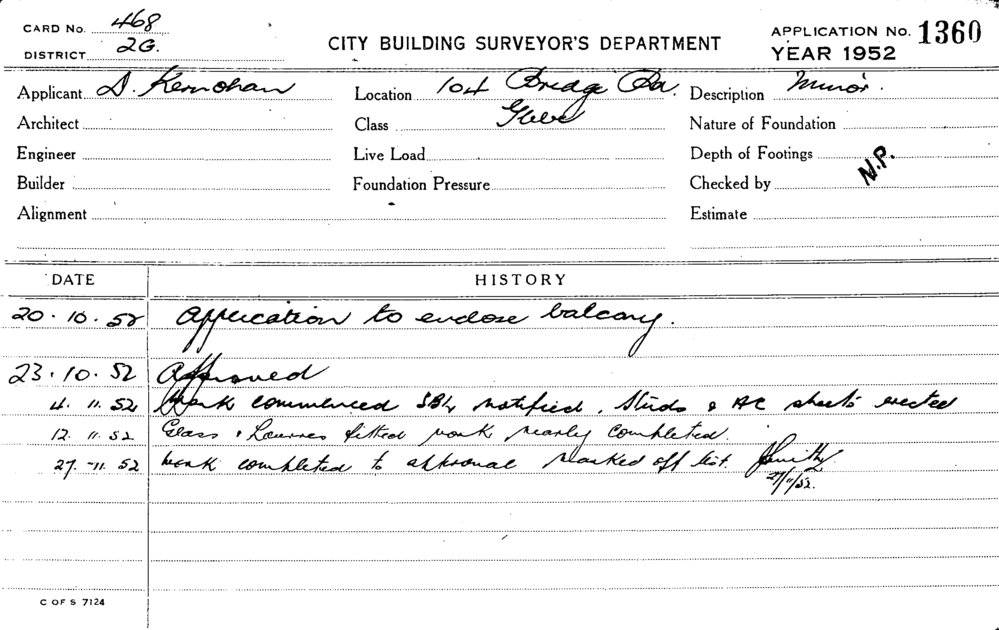 CARD No. 468
DISTRICT 2G.
CITY BUILDING SURVEYOR'S DEPARTMENT
APPLICATION No. 1360
YEAR 1952
Applicant D. Kernohan
Location 104 Bridge Rd. Glebe
Description Minor.
Architect
Class
Nature of Foundation
Engineer
Live Load
Depth of Footings
N.P.
Builder
Foundation Pressure
Checked by
Alignment
Estimate
DATE HISTORY
20.10.52 Application to enclose balcony.
23.10.52 Approved
4.11.52 Work commenced notified. Studs & AC sheets erected
12.11.52 Glass & Louvres fitted work nearly completed.
27-11.52 Work completed to approval Marked off list.
27/11/52.
C OF S 7124